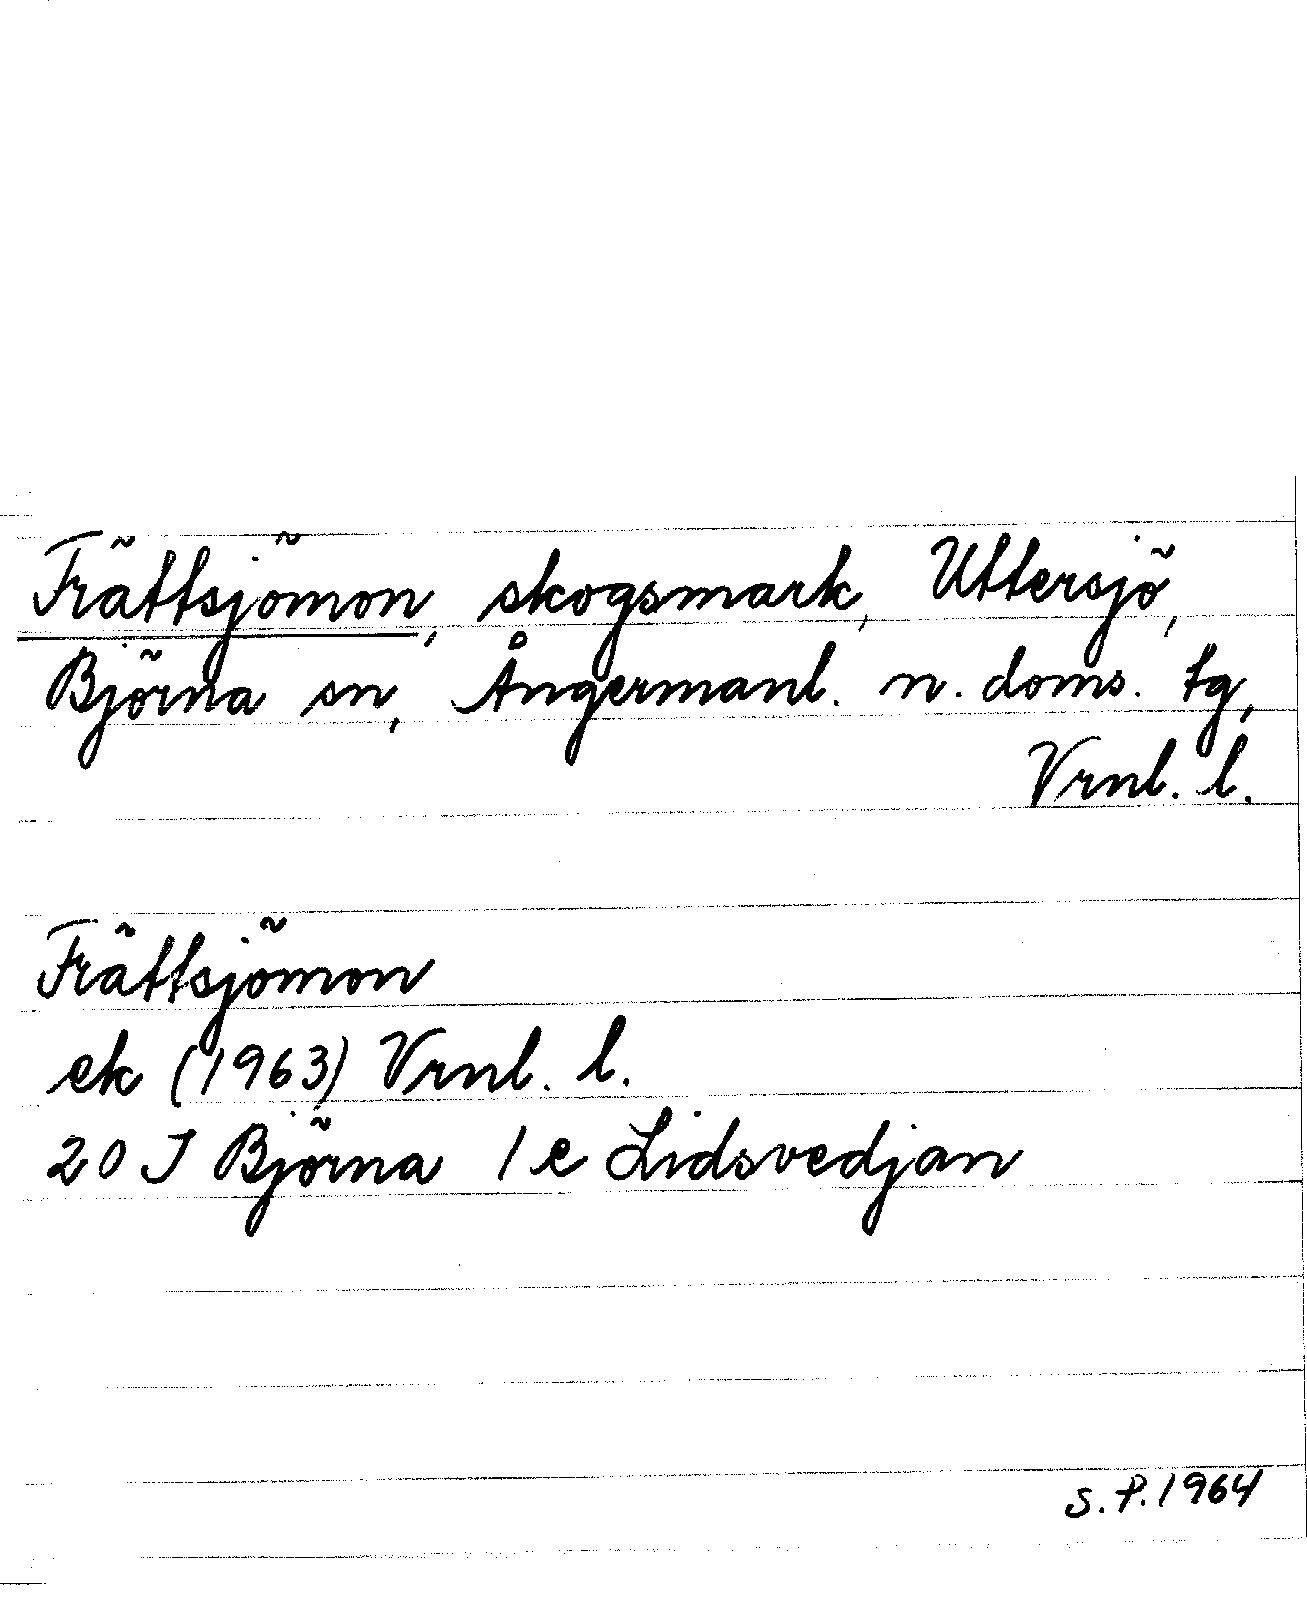 Frättsjömon, skogsmark, Uttersjö,
Björna sn, Ångermanl. n. doms. tg,
Vrnl. l.
Frättsjömon
ek (1963) Vrnl. l.
20 J Björna 1 e Lidsvedjan
S.P. 1964